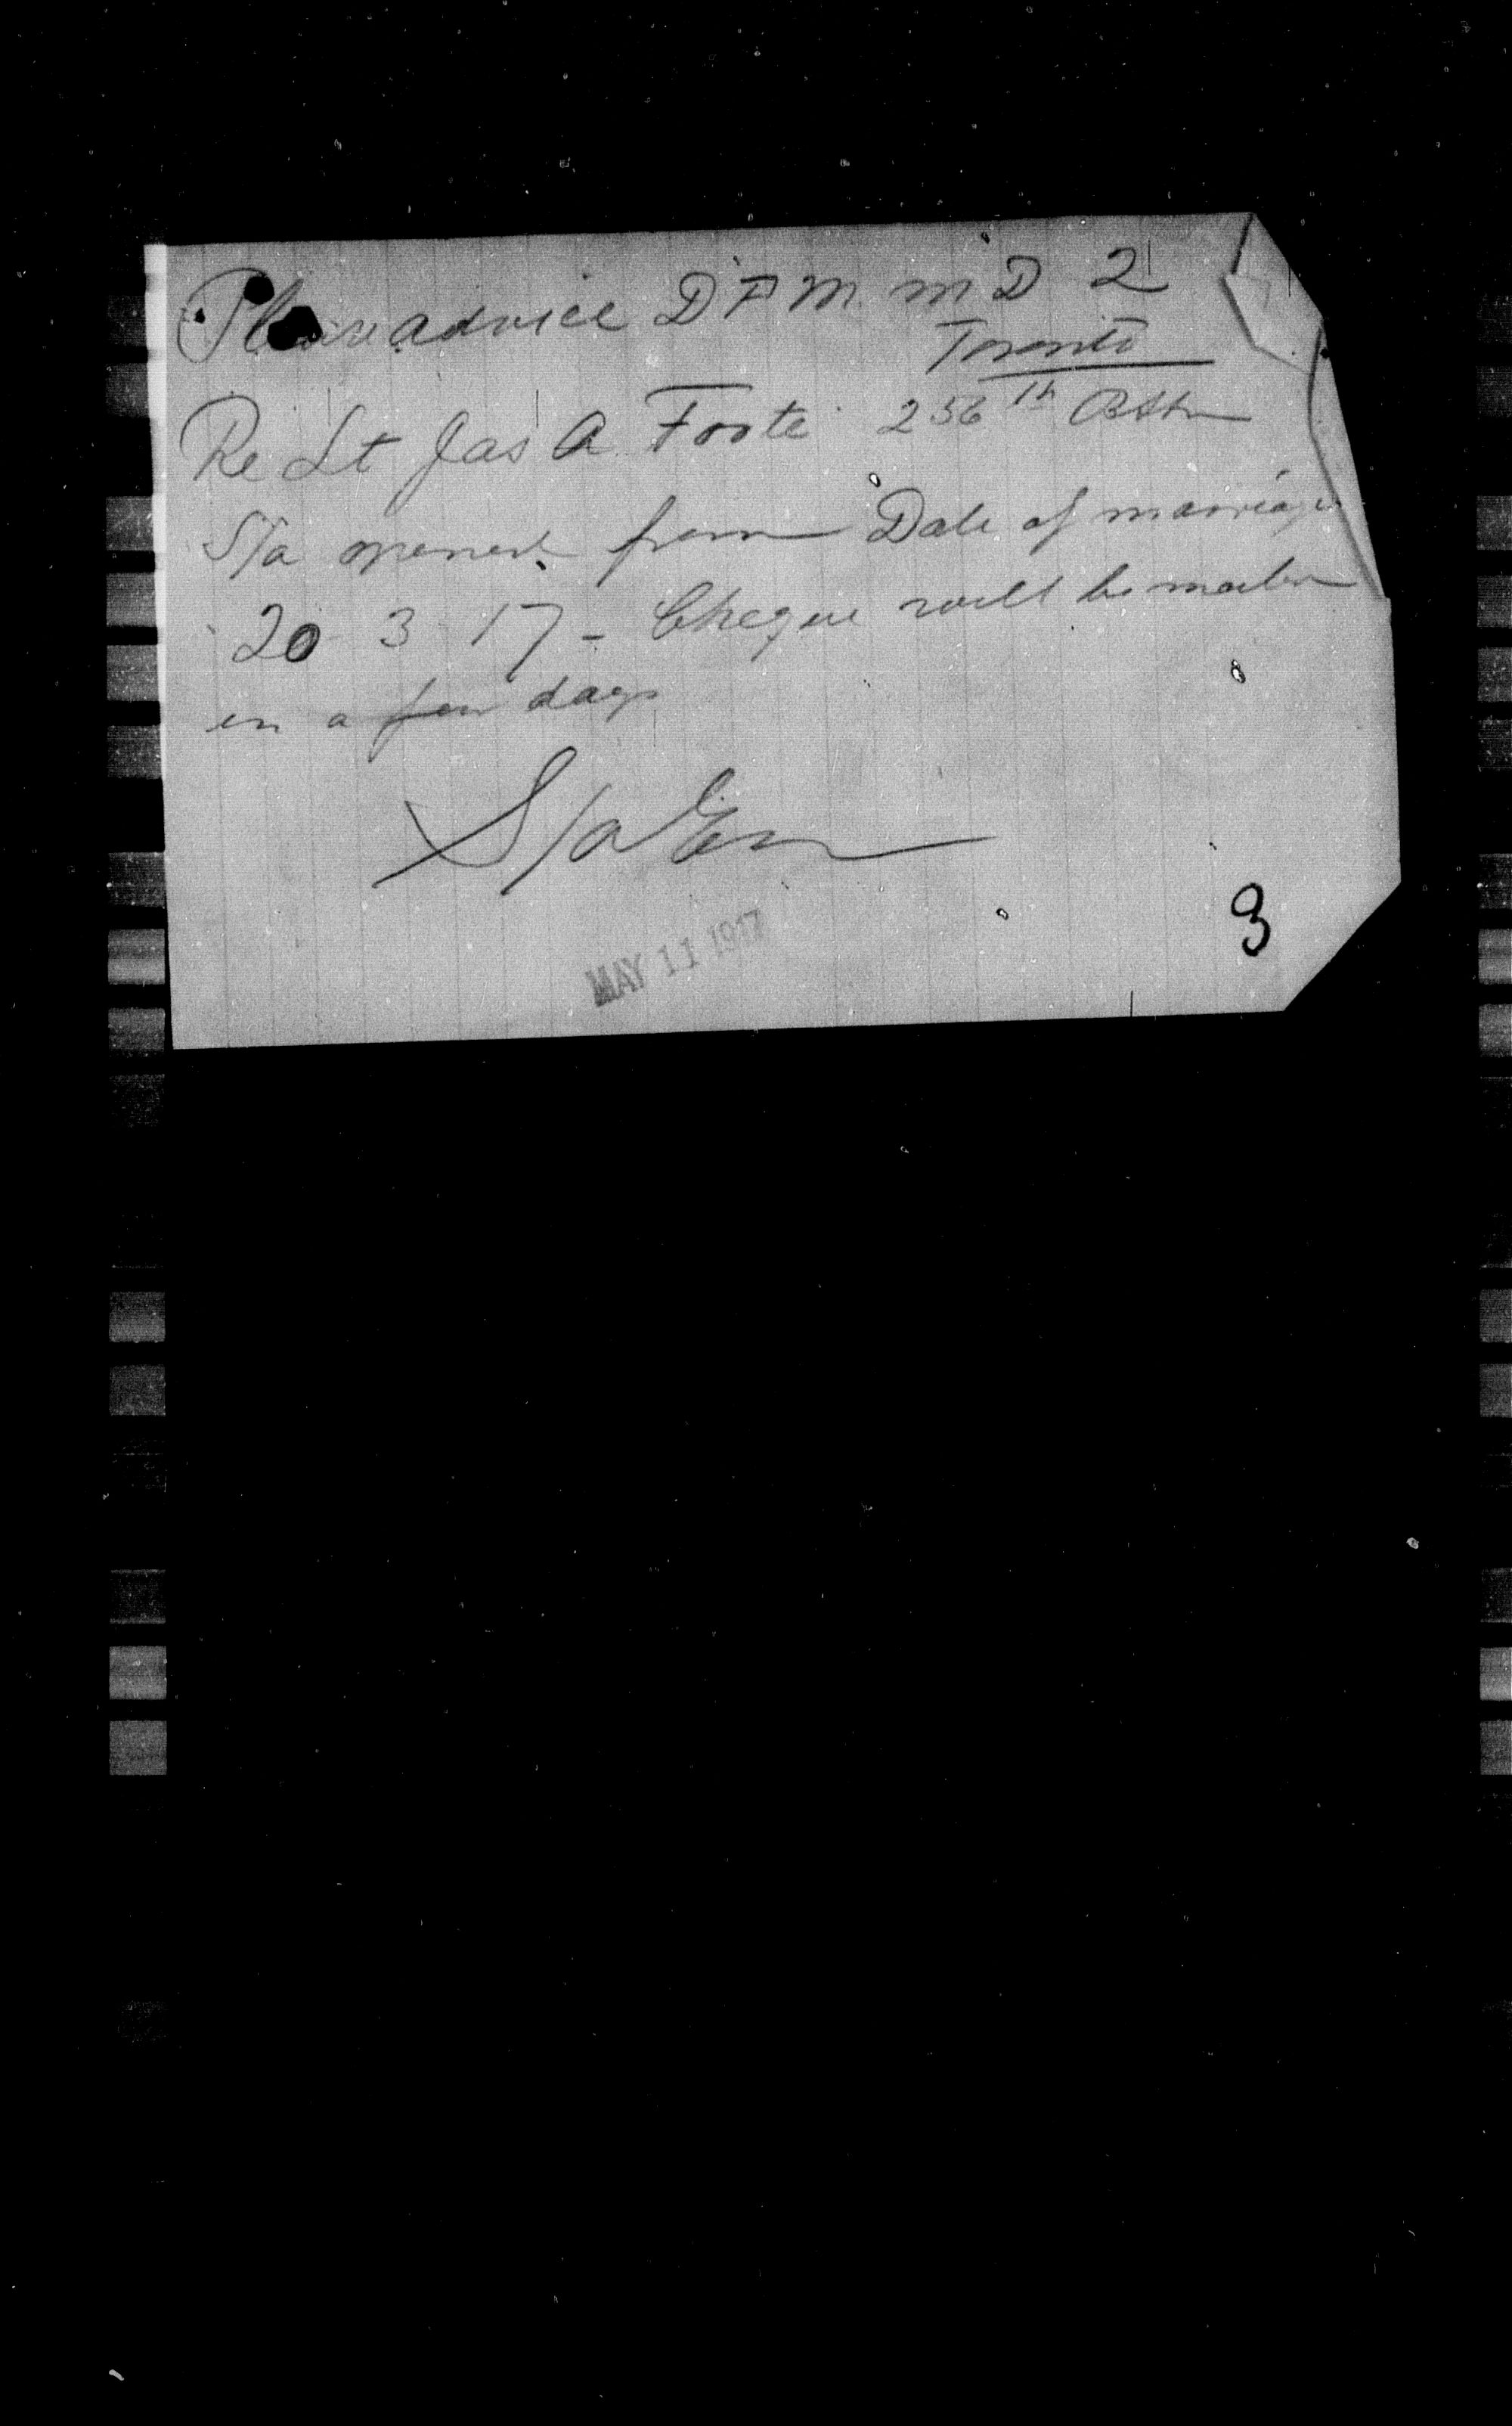 Please advice D P M M D 2
Toronto
Re Lt Jas A Foote 256th Battn
S/a opened from Date of marriage
20 3 17 - Cheque will be mailed
in a few days
S/a
MAY 11 1917
3